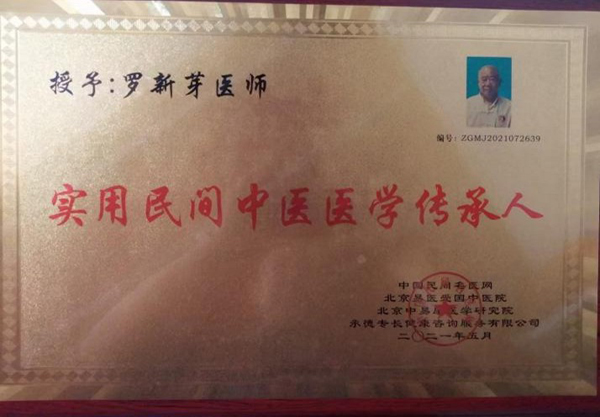 授予:罗新芽医师
编号：ZGMJ2021072639
实用民间中医医学传承人
中国民间名医网
北京易医爱国中医院
北京中易康医学研究院
承德专长健康咨询服务有限公司
二〇二一年五月